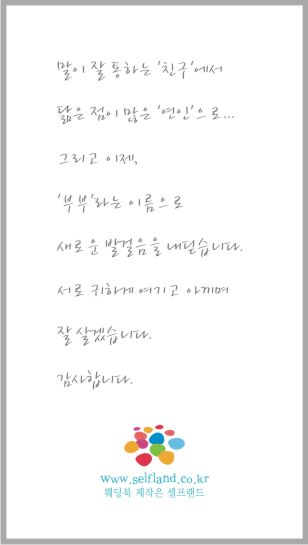 말이 잘 통하는 '친구'에서
닮은 점이 많은 '연인'으로...
그리고 이제,
'부부'라는 이름으로
새로운 발걸음을 내딛습니다.
서로 귀하게 여기고 아끼며
잘 살겠습니다.
감사합니다.
www.selfland.co.kr
웨딩북 제작은 셀프랜드